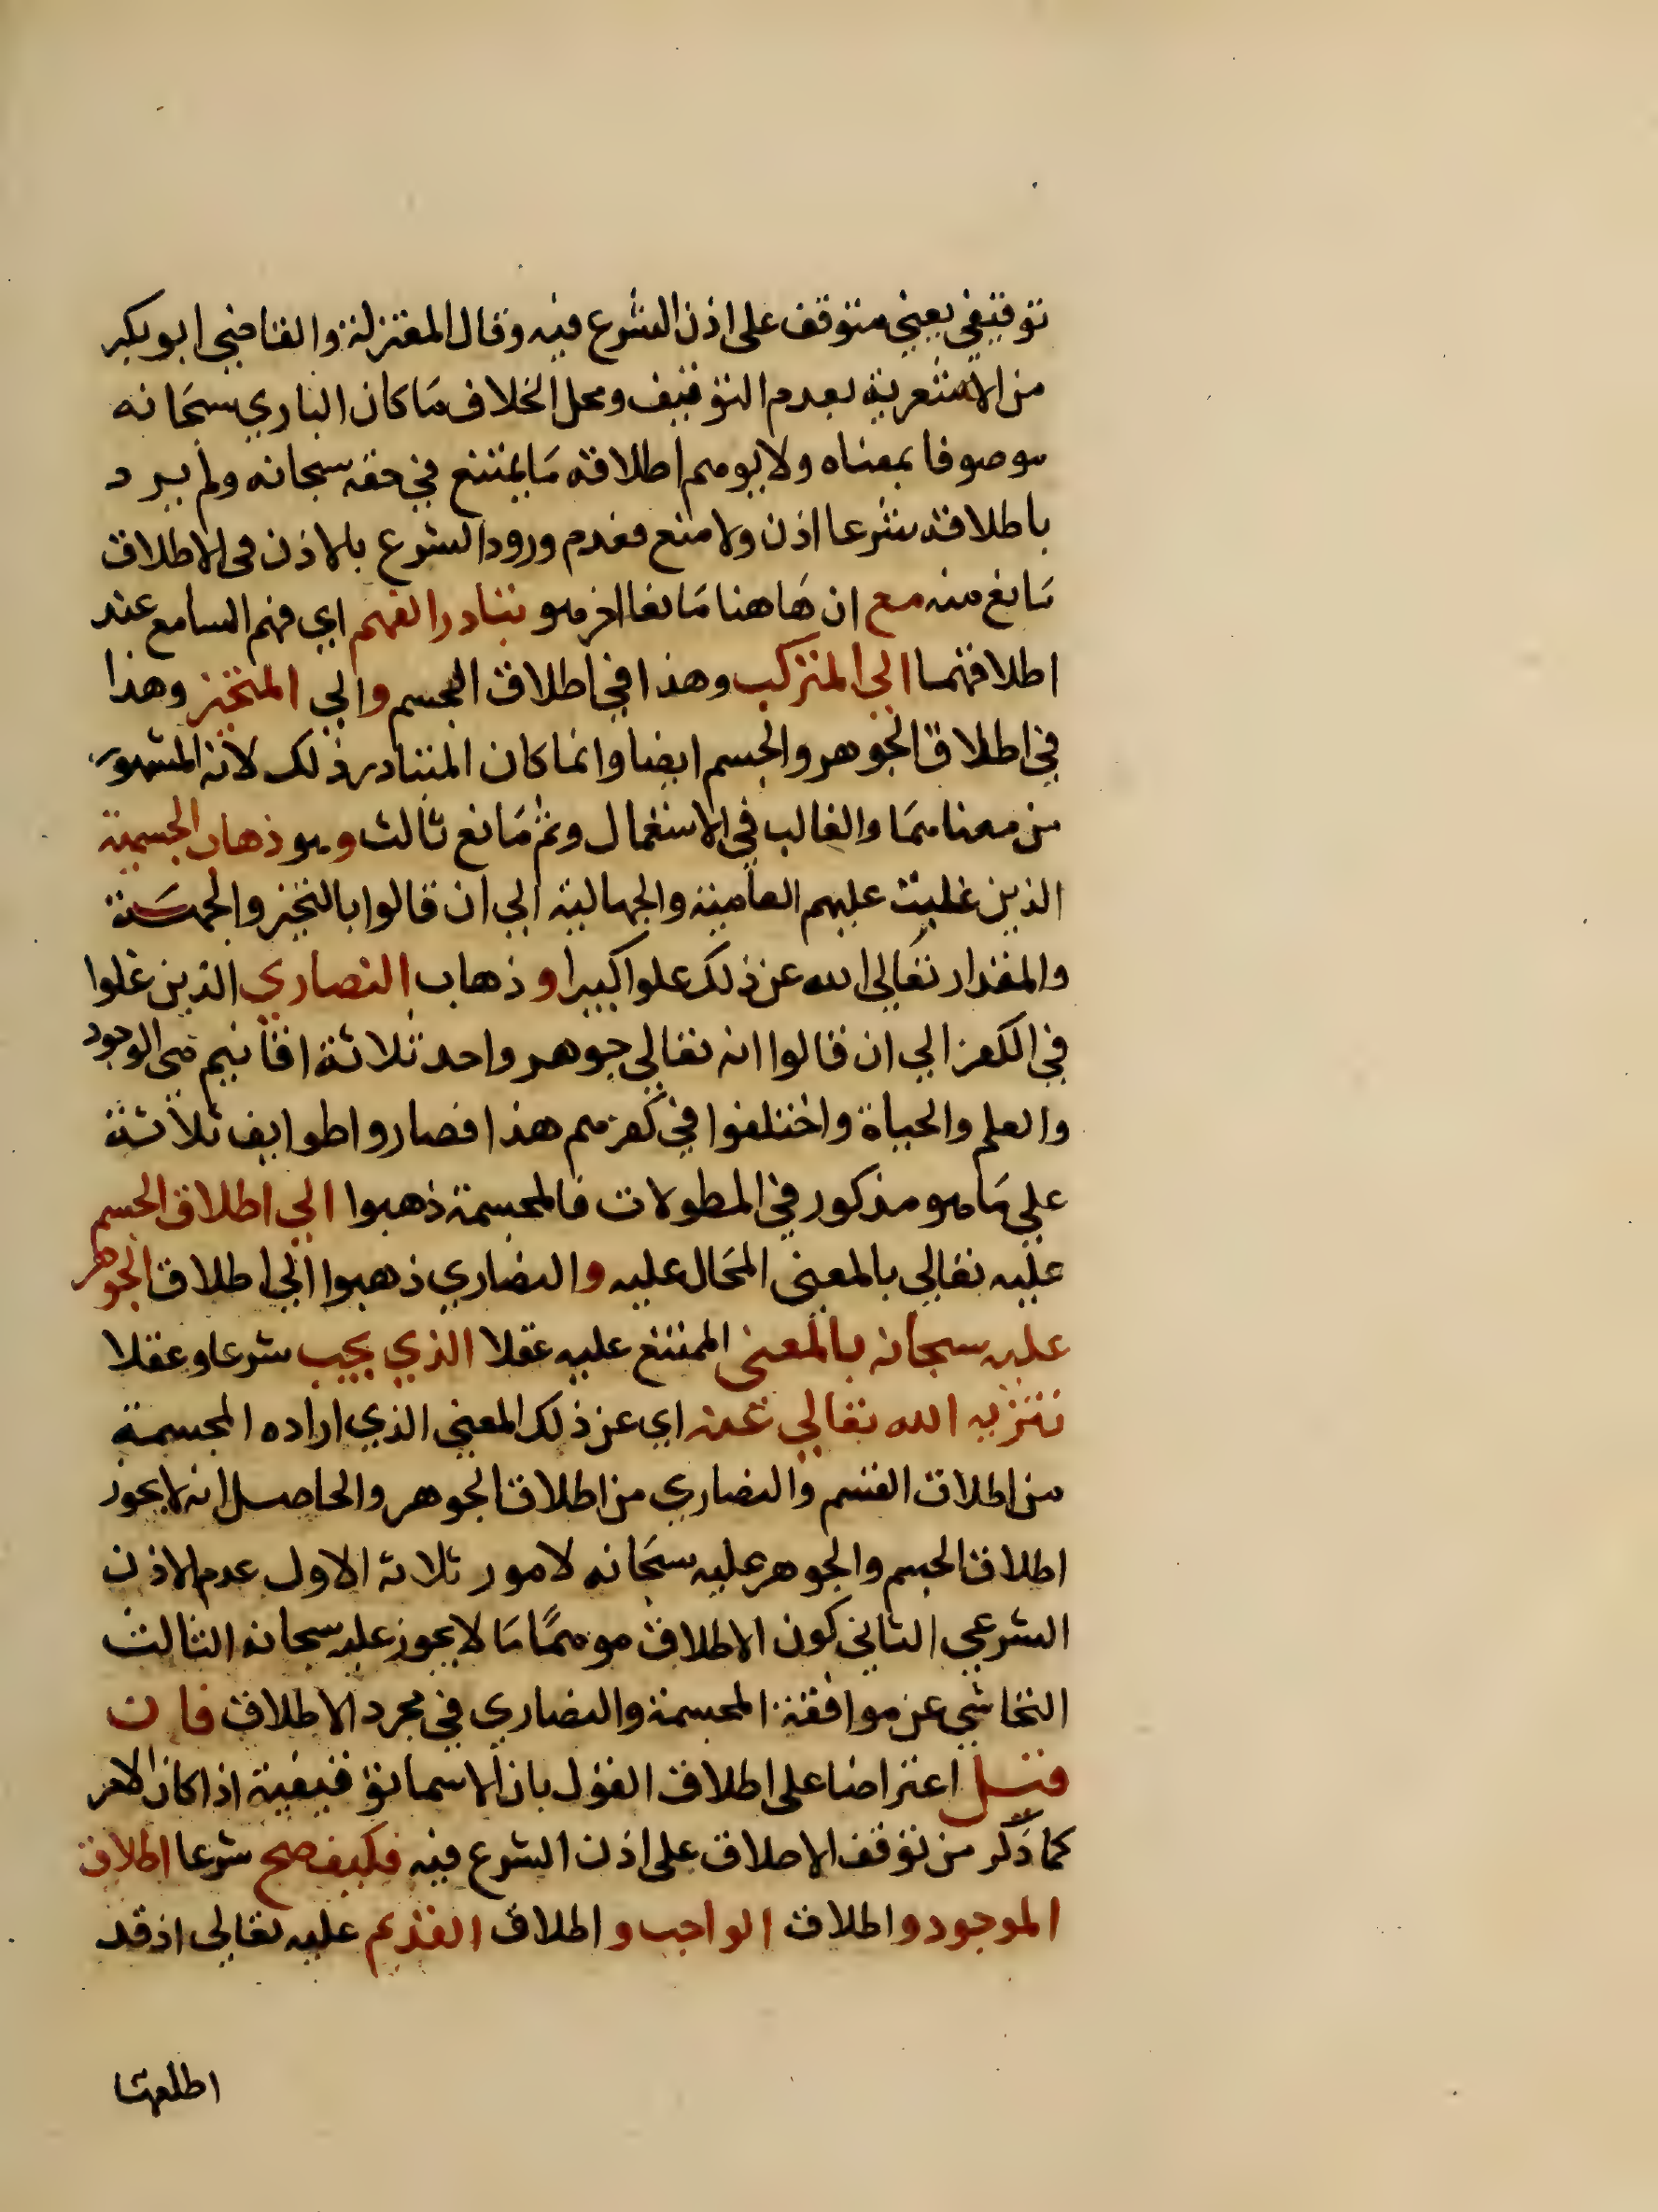 توقيفي يعني متوقف على اذن الشرع فيه وقال المعتزلة والقاضي ابوبكر
من الاشعرية بعدم التوقيف ومحل الخلاف ما كان الباري سبحانه
موصوفا بمعناه ولا يوهم اطلاقه ما يمتنع في حقه سبحانه ولم يرد
باطلاقه شرعا اذن ولا منع فعدم ورود الشرع بالاذن في الاطلاق
مانع منه مع ان هاهنا مانعا اخر هو تبادر الفهم اي فهم السامع عند
اطلاقهما الي المتركب وهذا في اطلاق الجسم والي المتحيز وهذا
في اطلاق الجوهر والجسم ايضا وانما كان المتبادر ذلك لانه المشهور
من معناهما والغالب في الاستعمال وثم مانع ثالث وهو ذهاب الجسمية
الذين غلبت عليهم العامية والجهالية الي ان قالوا بالتحيز والجهة
والمقدار تعالى الله عن ذلك علوا كبيرا وذهاب النصاري الذين غلوا
في الكفر الي ان قالوا انه تعالي جوهر واحد ثلاثة اقانيم هي الوجود
والعلم والحياة واختلفوا في كفرهم هذا فصاروا طوايف ثلاثة
علي ما هو مذكور في المطولات فالمجسمة ذهبوا الي اطلاق الجسم
عليه تعالي بالمعنى المحال عليه والنصاري ذهبوا الي اطلاق الجوهر
عليه سبحانه بالمعنى الممتنع عليه عقلا الذي يجب شرعا وعقلا
تنزيه الله تعالي عنه اي عن ذلك المعنى الذي اراده المجسمة
من اطلاق القسم والنصاري من اطلاق الجوهر والحاصل انه لا يجوز
اطلاق الجسم والجوهر عليه سبحانه لامور ثلاثة الاول عدم الاذن
الشرعي الثاني كون الاطلاق موهما ما لا يجوز عليه سبحانه الثالث
التحاشي عن موافقة المجسمة والنصاري في مجرد الاطلاق فان
قيل اعتراضا على اطلاق القول بان الاسما توقيفية اذا كان الامر
كما ذكر من توقف الاطلاق على اذن الشرع فيه فكيف صح شرعا اطلاق
الموجود واطلاق الواجب واطلاق القديم عليه تعالى اذ قد